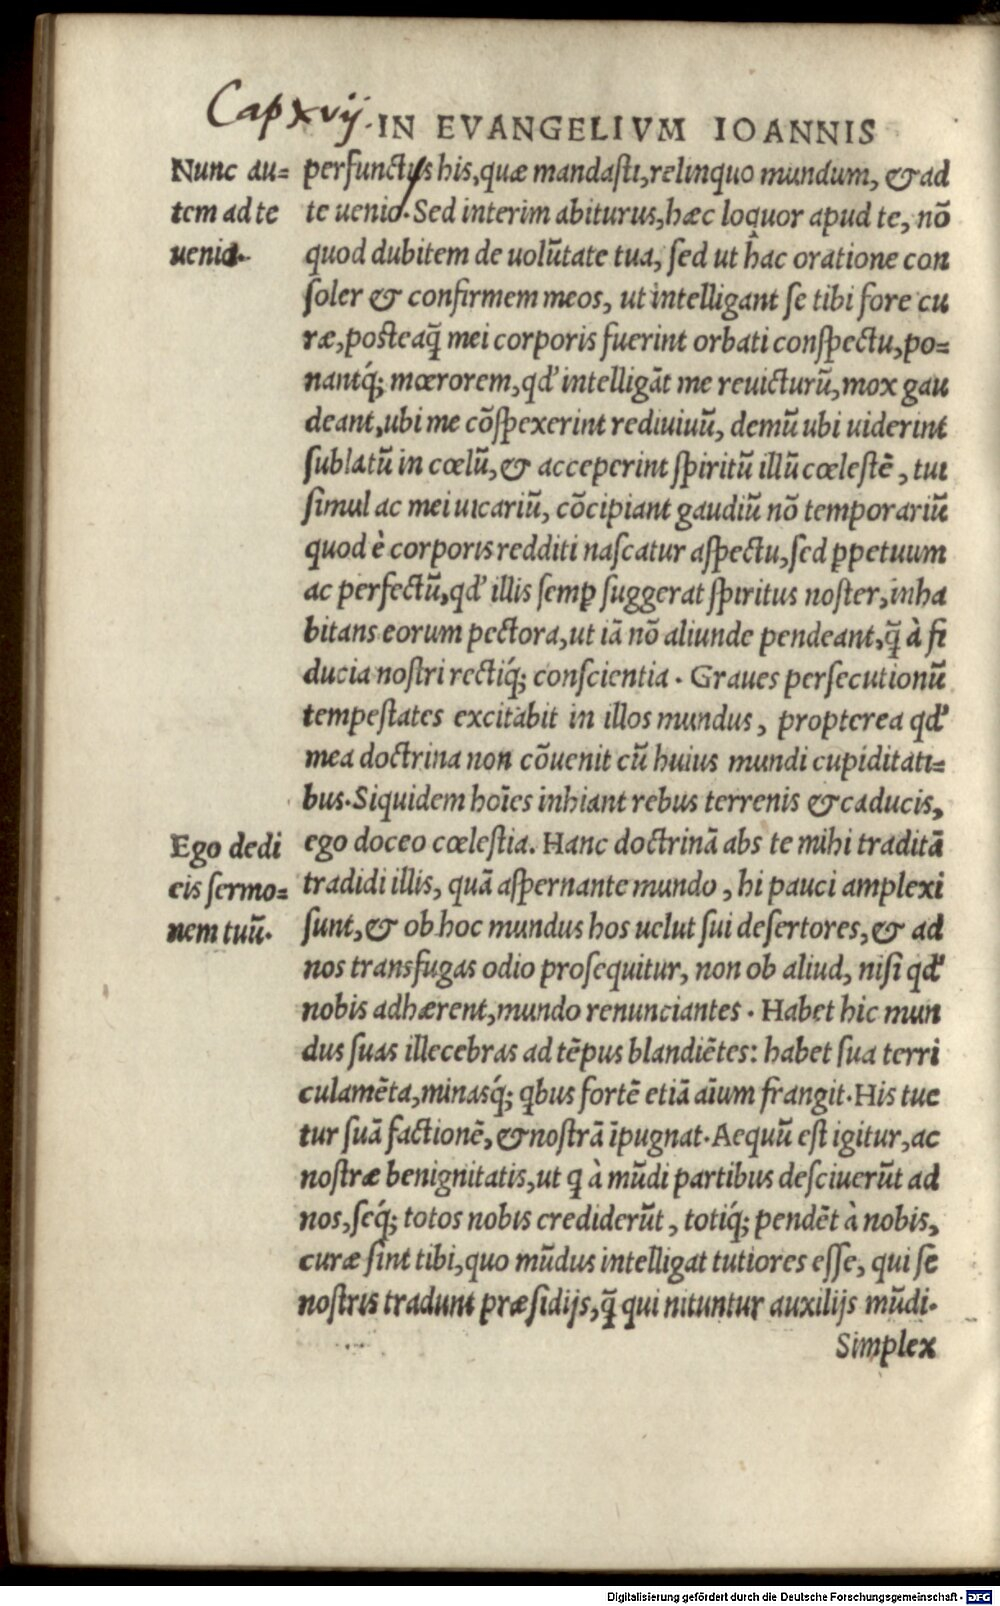 Cap xvij.
IN EVANGELIVM IOANNIS
Nunc au=
tem ad te
uenio.
perfunctus his, quæ mandasti, relinquo mundum, & ad
te uenio. Sed interim abiturus, hæc loquor apud te, nõ
quod dubitem de uolũtate tua, sed ut hac oratione con
soler & confirmem meos, ut intelligant se tibi fore cu
ræ, posteaq̃ mei corporis fuerint orbati conspectu, po=
nantq́; mœrorem, qd' intelligãt me reuicturũ, mox gau
deant, ubi me cõspexerint rediuiuũ, demũ ubi uiderint
sublatũ in cœlũ, & acceperint spiritũ illũ cœlestẽ, tui
simul ac mei uicariũ, cõcipiant gaudiũ nõ temporariũ
quod è corporis redditi nascatur aspectu, sed ꝑpetuum
ac perfectũ, qd' illis semꝑ suggerat spiritus noster, inha
bitans eorum pectora, ut iã nõ aliunde pendeant, q̃ à fi
ducia nostri rectiq́; conscientia. Graues persecutionũ
tempestates excitabit in illos mundus, propterea qd'
mea doctrina non cõuenit cũ huius mundi cupiditati=
bus. Siquidem hoĩes inhiant rebus terrenis & caducis,
Ego dedi
eis sermo=
nem tuũ.
ego doceo cœlestia. Hanc doctrinã abs te mihi traditã
tradidi illis, quã aspernante mundo, hi pauci amplexi
sunt, & ob hoc mundus hos uelut sui desertores, & ad
nos transfugas odio prosequitur, non ob aliud, nisi qd'
nobis adhærent, mundo renunciantes. Habet hic mun
dus suas illecebras ad tẽpus blandiẽtes: habet sua terri
culamẽta, minasq́; qbus fortẽ etiã aĩum frangit. His tue
tur suã factionẽ, & nostrã ĩpugnat. Aequũ est igitur, ac
nostræ benignitatis, ut q à mũdi partibus desciuerũt ad
nos, seq́; totos nobis crediderũt, totiq́; pendẽt à nobis,
curæ sint tibi, quo mũdus intelligat tutiores esse, qui se
nostris tradunt præsidijs, q̃ qui nituntur auxilijs mũdi.
Simplex
Digitalisierung gefördert durch die Deutsche Forschungsgemeinschaft - DFG